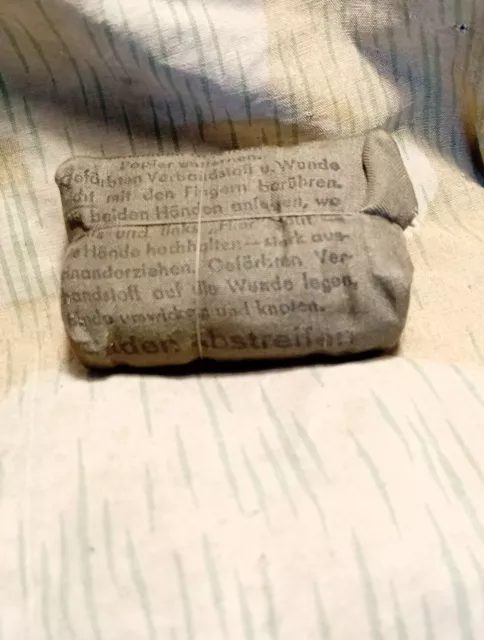 Papier entfernen.
Gefärbten Verbandstoff u. Wunde
cht mit den Fingern berühren.
beiden Händen anfassen, wo
und links „Hier
Hände hochhalten – stark aus-
inanderziehen. Gefärbten Ver-
bandstoff auf die Wunde legen,
Binde umwickeln und knoten.
nden abstreifen